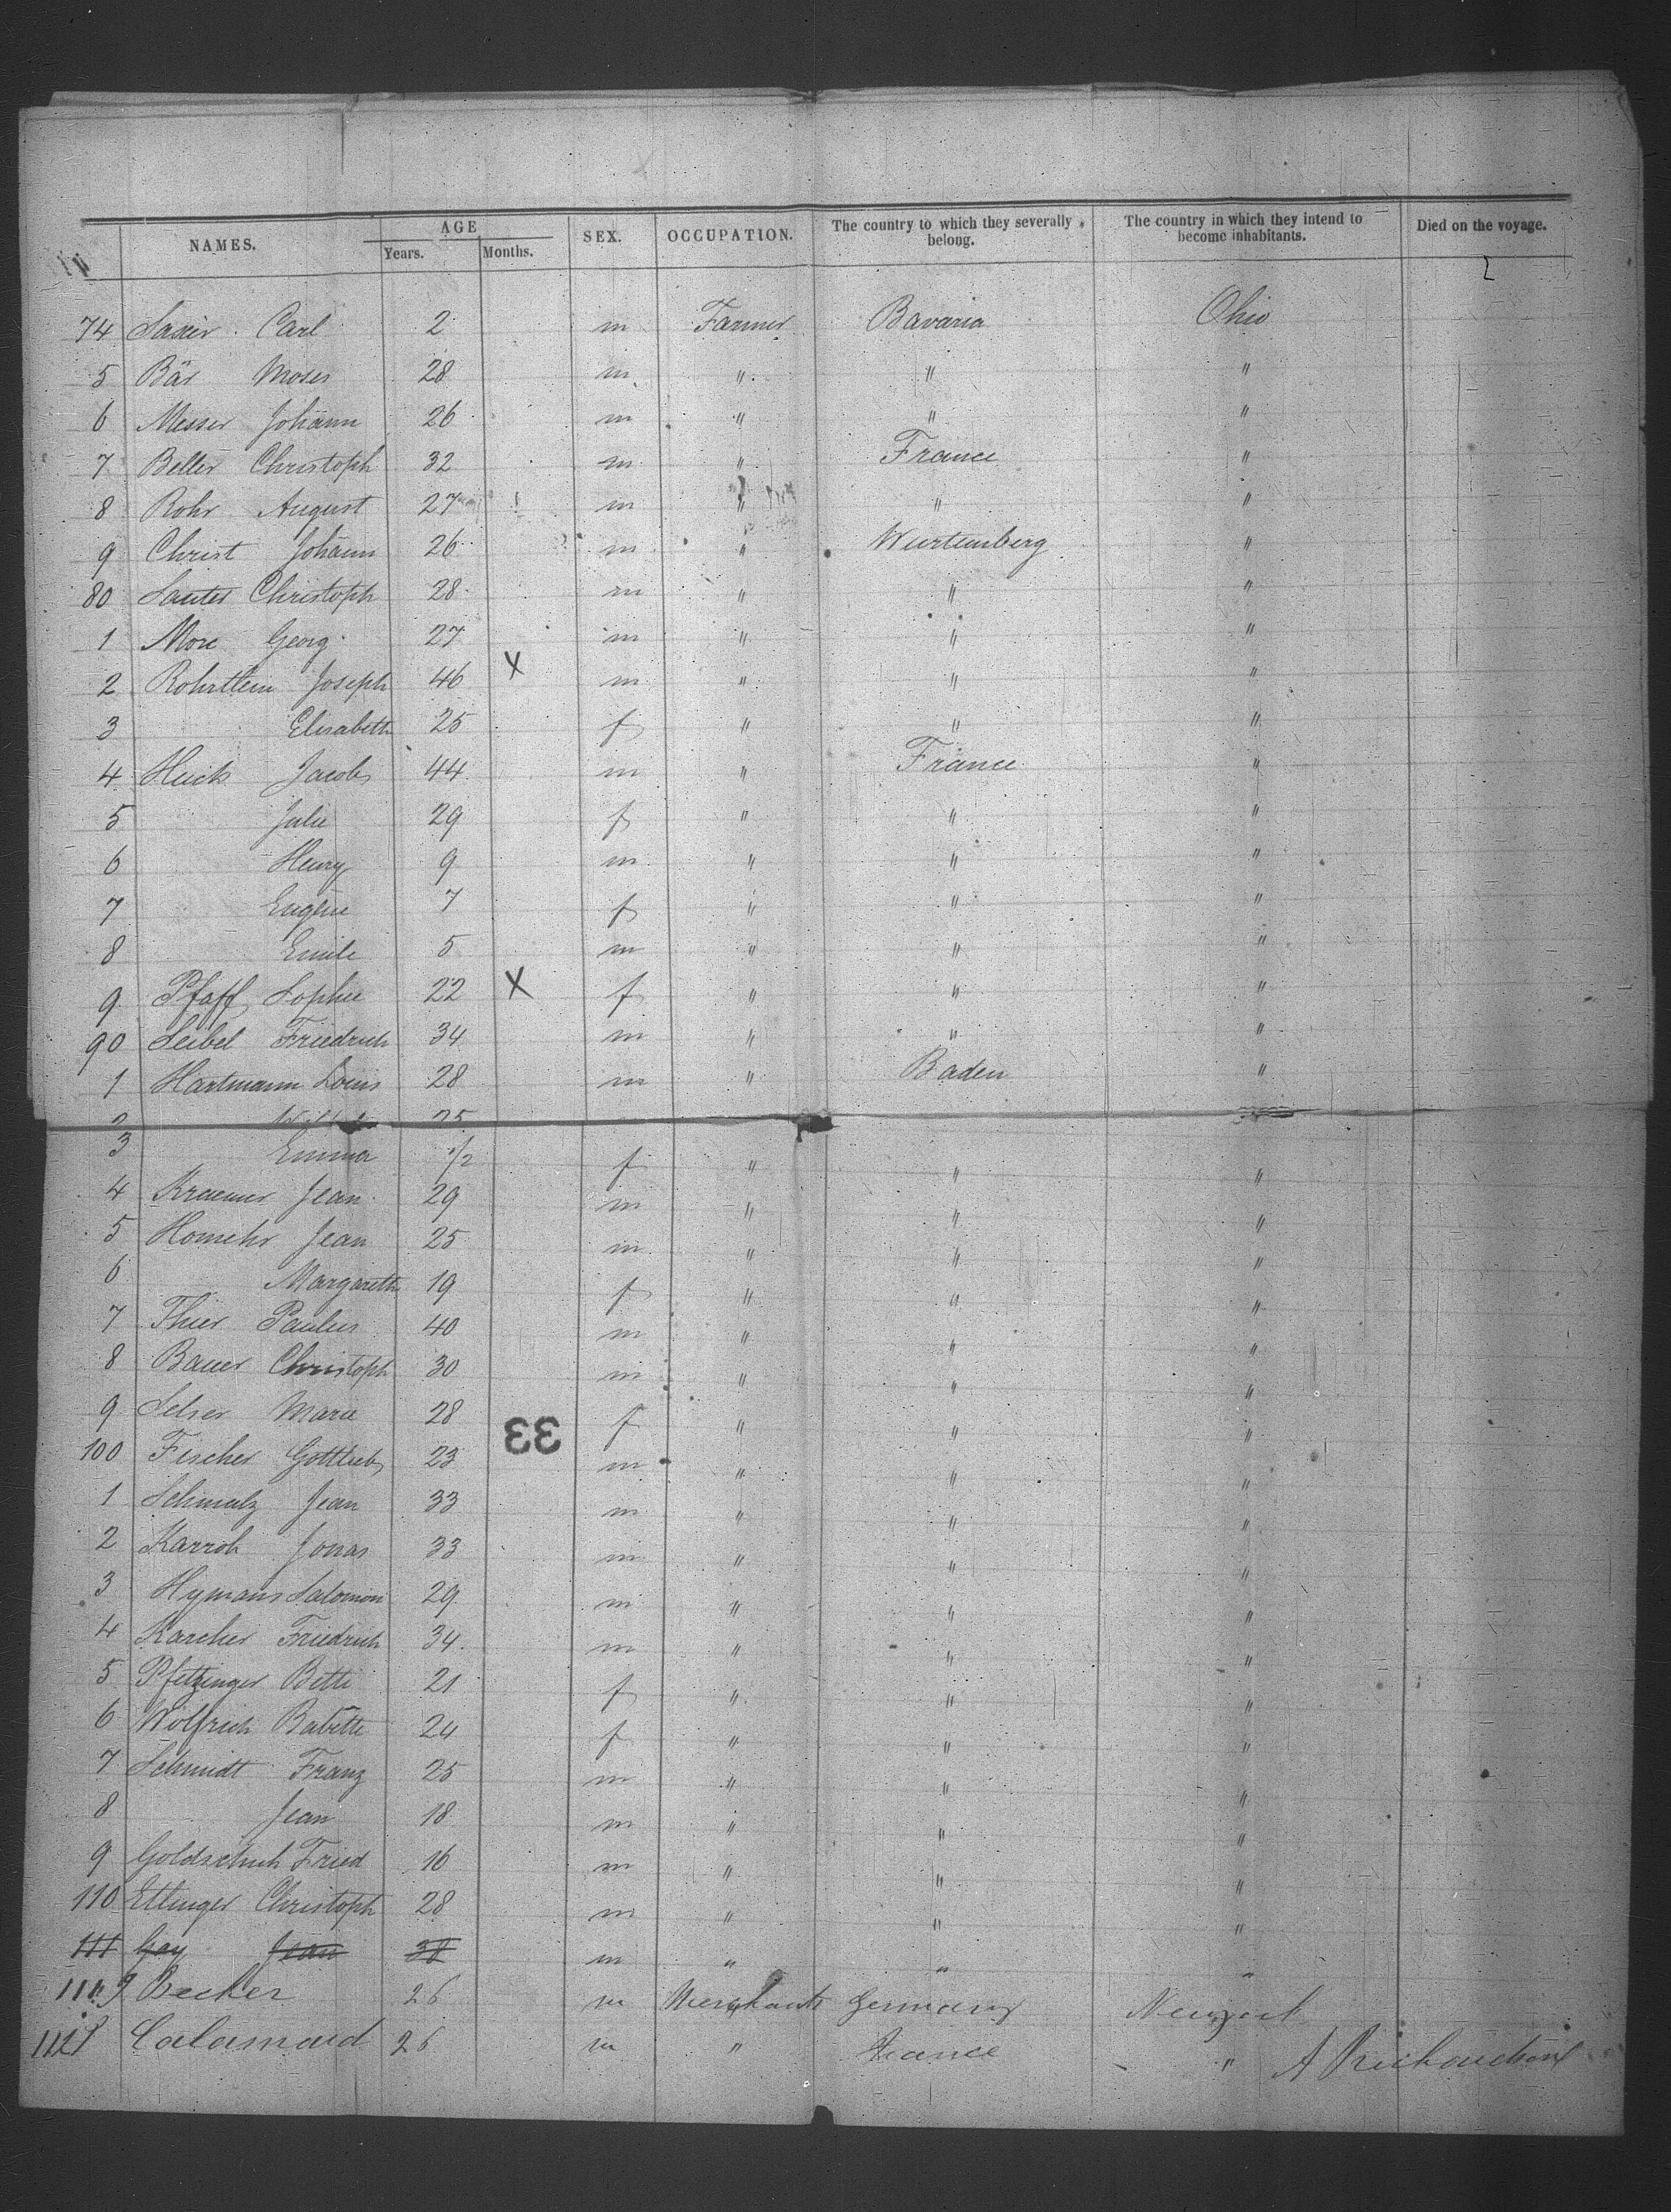 NAMES. AGE SEX. OCCUPATION. The country to which they severally belong. The country in which they intend to become inhabitants. Died on the voyage.
Years. Months.
2
74 Carl 2 m Farmer Bavaria Ohio
5 Bär Moses 28 m " " "
6 Messer Johann 26 m " " "
7 Beller Christoph 32 m " France "
8 Rohr August 27 m " " "
9 Christ Johann 26 m " Wurtemberg "
80 Sauter Christoph 28 m " " "
1 More Georg 27 m " " "
2 Joseph 46 X m " " "
3 Elisabeth 25 f " " "
4 Huck Jacob 44 m " France "
5 Julie 29 f " " "
6 Henry 9 m " " "
7 Eugénie 7 f " " "
8 Emile 5 m " " "
9 Pfaff Sophie 22 X f " " "
90 Seibel Friedrich 34 m " " "
1 Hartmann Louis 28 m " Baden "
2 25
3 Emma 1/2 f " " "
4 Kraemer Jean 29 m " " "
5 Homehr Jean 25 m " " "
6 Margareth 19 f " " "
7 Thier Paulus 40 m " " "
8 Bauer Christoph 30 m " " "
9 Selser Marie 28 f " " "
33
100 Fischer Gottlieb 23 m " " "
1 Schmalz Jean 33 m " " "
2 Karrob Jonas 33 m " " "
3 Hymans Salomon 29 m " " "
4 Karcher Friedrich 34 m " " "
5 Pfetzinger Betti 21 f " " "
6 Wolfrich Babette 24 f " " "
7 Schmidt Franz 25 m " " "
8 Jean 18 m " " "
9 Goldschuh Fried 16 m " " "
110 Etlinger Christoph 28 m " " "
111 Gay Jean 38 m " " "
111 J Becker 26 m Merchants Germany Newyork
112 Calamard 26 m " France " A Richardson